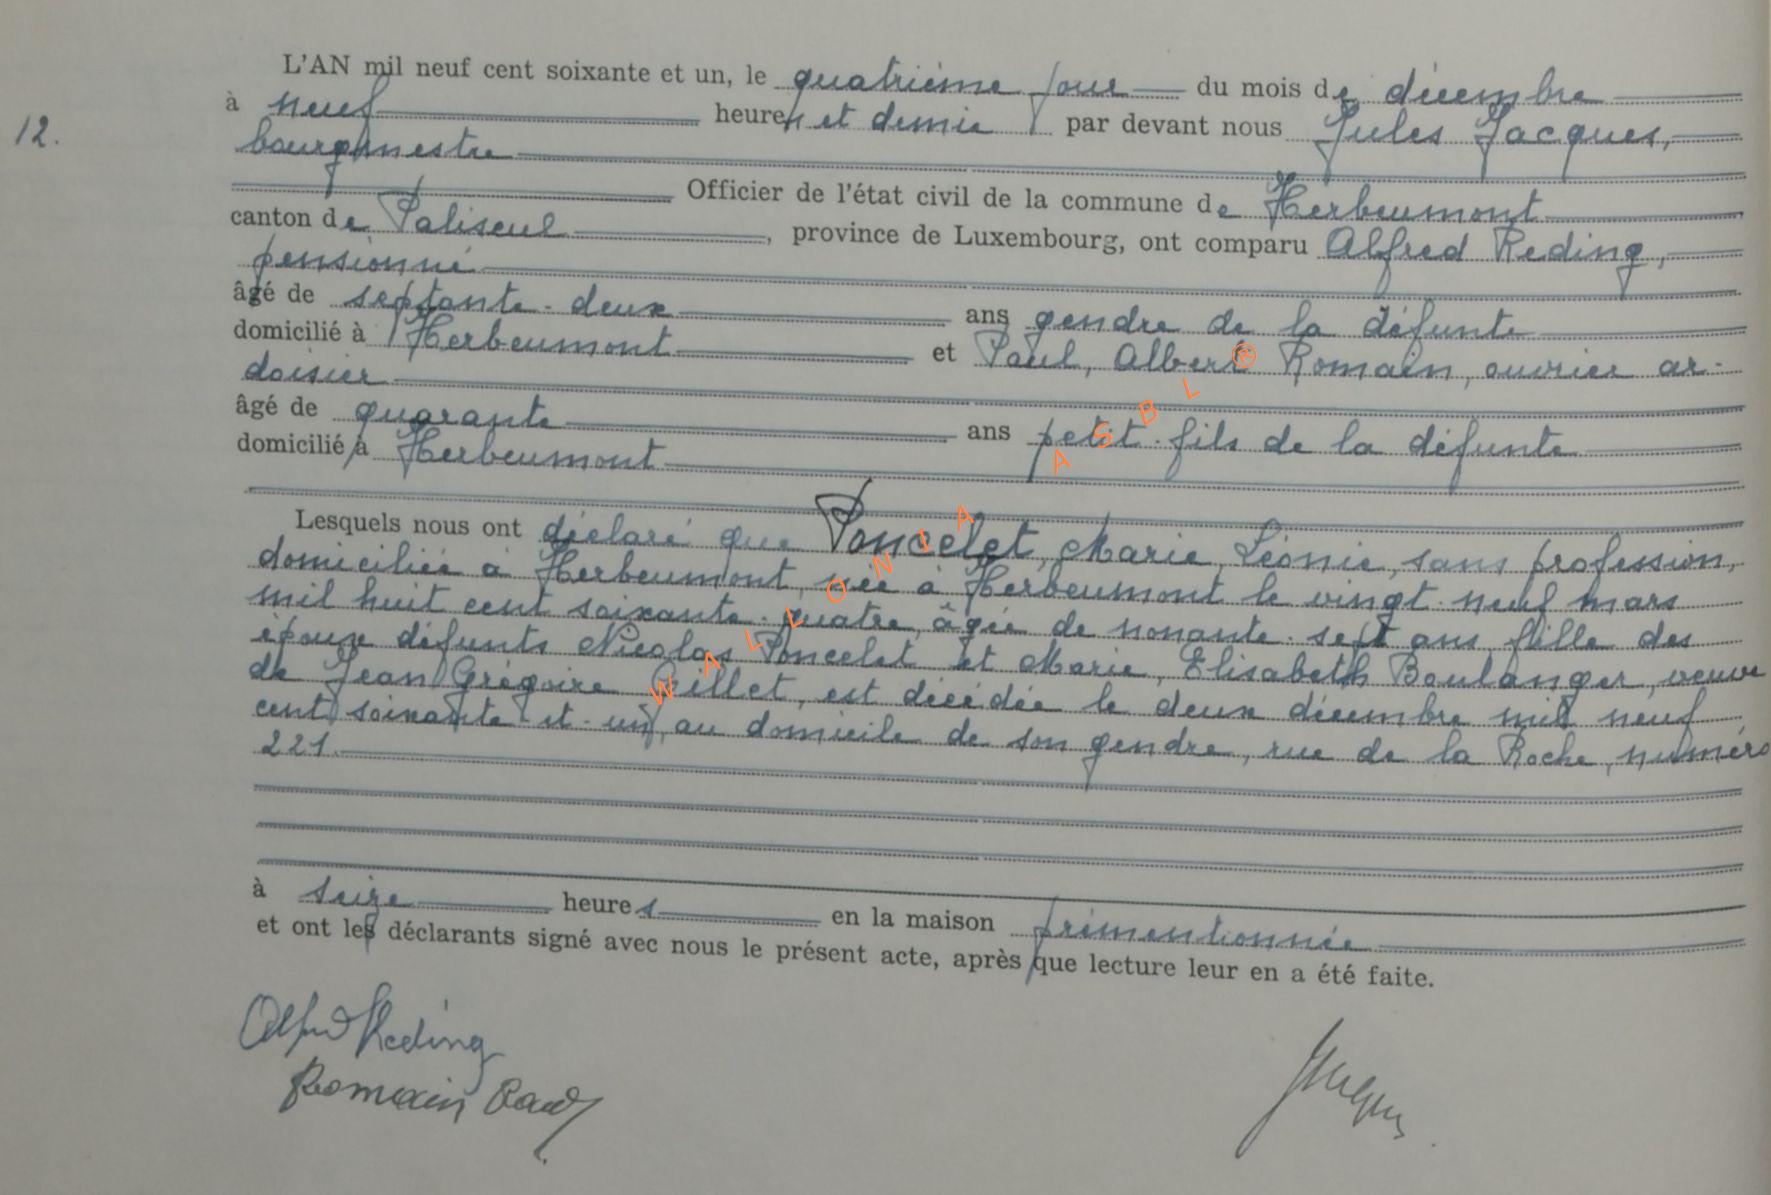 L'AN mil neuf cent soixante et un, le quatrième jour du mois de décembre
à neuf heures et demie par devant nous Jules Jacques,
12.
bourgmestre
Officier de l'état civil de la commune de Herbeumont
canton de Paliseul, province de Luxembourg, ont comparu Alfred Reding,
pensionné
âgé de septante-deux ans gendre de la défunte
domicilié à Herbeumont et Paul, Albert Romain, ouvrier ar-
doisier
âgé de quarante ans petit-fils de la défunte
domicilié à Herbeumont
Lesquels nous ont déclaré que Poncelet, Marie, Léonie, sans profession,
domiciliée à Herbeumont, née à Herbeumont le vingt-neuf mars
mil huit cent soixante-quatre, âgée de nonante-sept ans, fille des
époux défunts Nicolas Poncelet et Marie, Elisabeth Boulanger, veuve
de Jean Grégoire Gillet, est décédée le deux décembre mil neuf
cent soixante et un, au domicile de son gendre, rue de la Roche, numéro
221.
à seize heures en la maison prémentionnée
et ont les déclarants signé avec nous le présent acte, après que lecture leur en a été faite.
Alfred Reding
Romain Paul
Jacques
WALLONIA ASBL ®